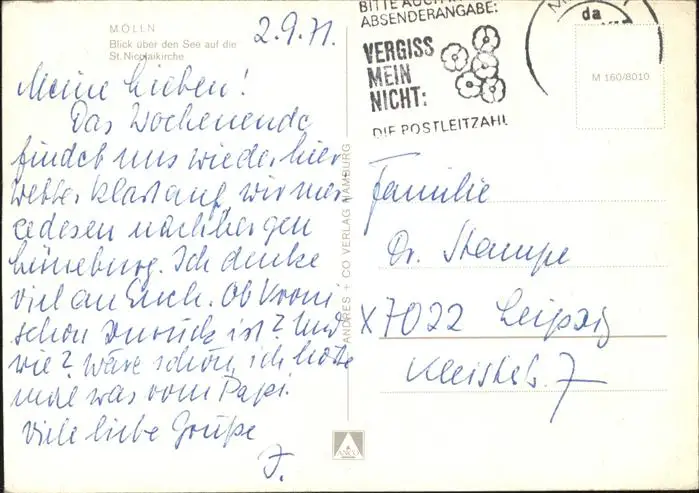 MÖLLN
Blick über den See auf die
St. Nicolaikirche
2.9.71.
Meine Lieben!
Das Wochenende
findet uns wieder hier
Wetter klart auf, wir
nach
Lüneburg. Ich denke
viel an Euch. Ob
schon zurück ist? Und
wie? Wäre schön, ich hörte
mal was vom Papi.
Viele liebe Grüße
J.
BITTE AUCH
ABSENDERANGABE:
VERGISS
MEIN
NICHT:
DIE POSTLEITZAHL
da
M 160/8010
ANDRES + CO VERLAG HAMBURG
Familie
Dr. Stampe
X7022 Leipzig
Kleiststr. 7
ANCO